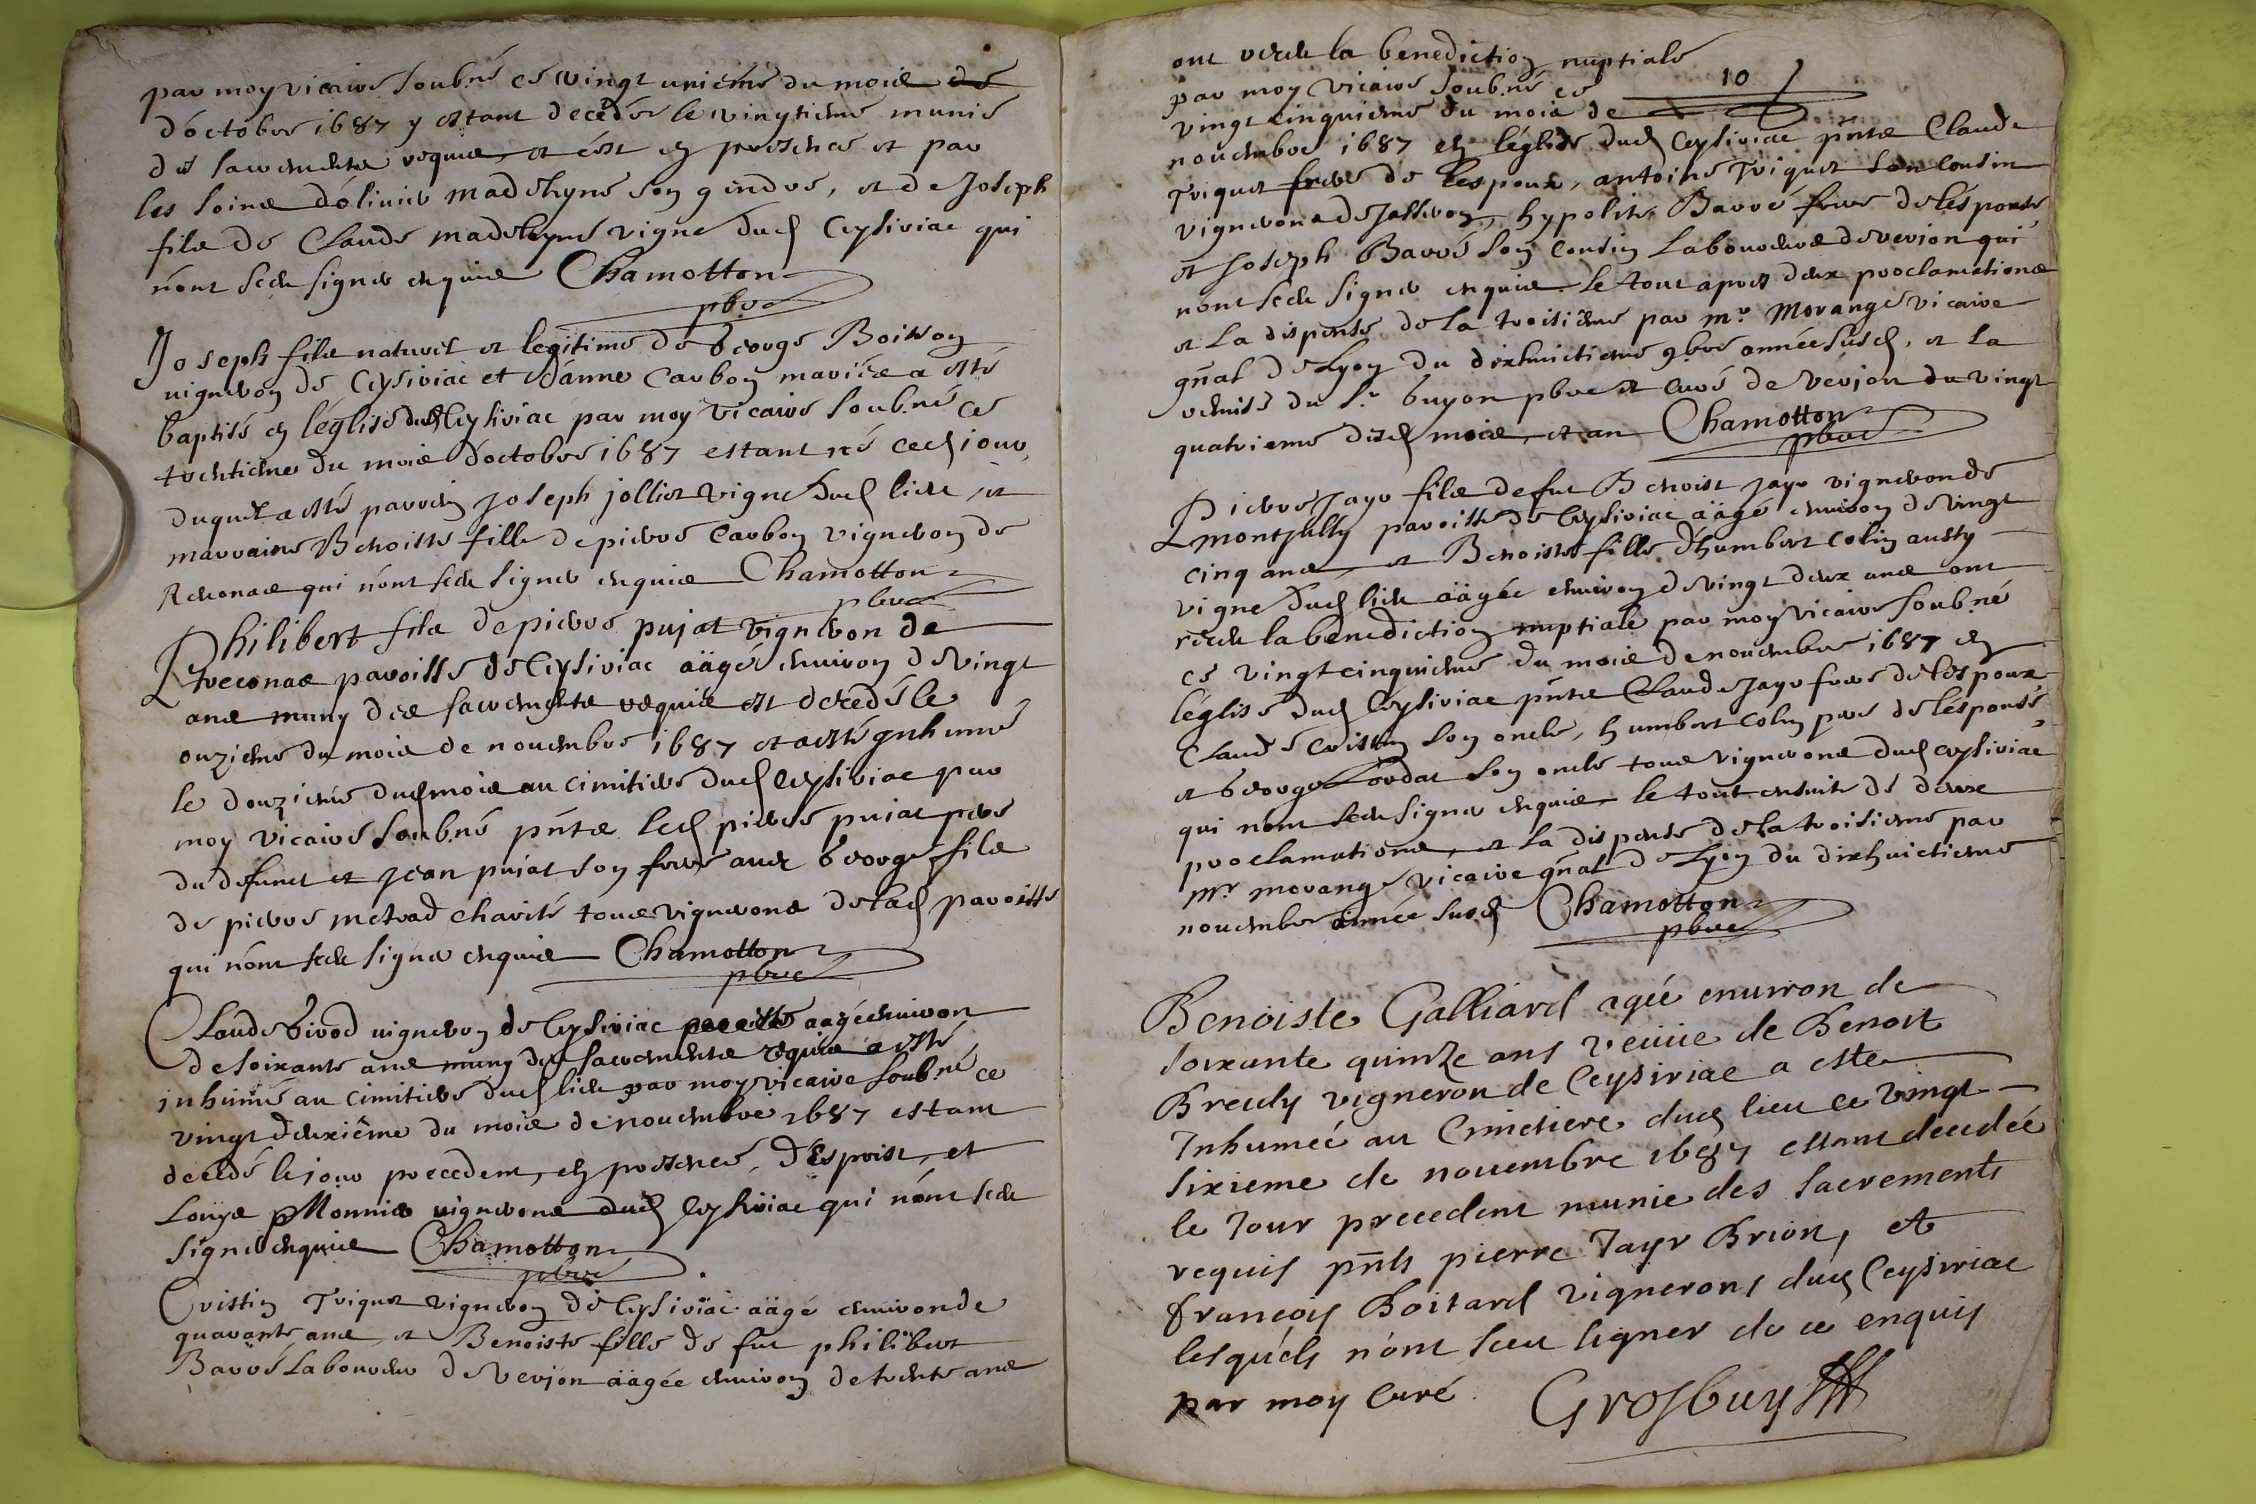 par moy vicaire soub.né ce vingt unieme du mois de
d'octobre 1687 y estant decedée le vingtieme munie
des sacrements requis et c'est en presence et par
les soins d'olivier madeleyne son gendre, et de Joseph
fils de Claude madeleyne vigne dud Ceysiriac qui
n'ont sceu signer enquis Chamotton
pbre
Joseph fils naturel et legitime de George Boisson
vigneron de Ceysiriac et d'anne Carbon mariés a esté
baptisé en l'eglise dud Ceysiriac par moy vicaire soub.né ce
trentieme du mois d'octobre 1687 estant né ced jour,
duquel a esté parrein Joseph jolliet vigne dud lieu, et
marraine Benoiste fille de pierre Carbon vigneron de
qui n'ont sceu signer enquis Chamotton
pbre
Philibert fils de pierre pujat vigneron de
treconas paroisse de Ceysiriac aägé environ de vingt
ans muny des sacrements requis est decedé le
onzieme du mois de novembre 1687 et a esté inhumé
le douzieme dud mois au cimitiere dud Ceysiriac par
moy vicaire soub.né pnts led pierre pujat pere
du defunct et jean pujat son frere avec George fils
de pierre metrad charité tous vignerons de lad paroisse
qui n'ont sceu signer enquis Chamotton
pbre
Claude Givod vigneron de Ceysiriac aagé environ
de soixante ans muny des sacrements requis a esté
inhumé au cimitiere dud lieu par moy vicaire soub.né ce
vingt deuxième du mois de novembre 1687 estant
decedé le jour precedent, en presence, d'Esprist, et
Louys Monnier vignerons dud Ceysiriac qui n'ont sceu
signer enquis Chamotton
pbre
Cristin Triquet vigneron de Ceysiriac aägé environ de
quarante ans, et Benoiste fille de fut philibert
Barré Laboureur de Verjon aägée environ de trente ans
ont receu la benediction nuptiale
par moy vicaire soub.né ce
10
vingt cinquieme du mois de
novembre 1687 en l'eglise dud Ceysiriac pnts Claude
Triquet frere de l'espoux, antoine Triquet son cousin
vignerons de Jasseron, hypolite Barré frere de l'espouse,
et Joseph Barré son cousin Laboureurs de verjon qui
n'ont sceu signer enquis. Le tout apres deux proclamations
et la dispense de la troisième par mr. Morange vicaire
gñal de Lyon du dixhuictieme 9bre année susd, et la
remise du Sr. buyon pbre et curé de verjon du vingt
quatrieme desd mois, et an Chamotton
pbre
Pierre Jayr fils de fut Benoist jayr vigneron de
montjully paroisse de Ceysiriac aägé environ de vingt
cinq ans, et Benoiste fille d'humbert Colin aussy
vigne dud lieu aägée environ de vingt deux ans ont
receu la benediction nuptiale par moy vicaire soub.né
ce vingtcinquieme du mois de novembre 1687 en
l'eglise dud Ceysiriac pnts Claude Jayr frere de l'espoux
Claude Cristin son oncle, humbert Colin pere de l'espouse,
et George Lordat son oncle tous vignerons dud ceysiriac
qui n'ont sceu signer enquis, le tout ensuite de deux
proclamations, et la dispense de la troisieme par
mr. morange vicaire gñal de Lyon du dixhuictieme
novembre année susd Chamotton
pbre
Benoiste Galliard agée environ de
soixante quinze ans veuve de Benoit
Breuly vigneron de Ceysiriac a este
Inhumeé au Cimetiere dud lieu ce vingt
sixieme de novembre 1687 estant decedée
le Jour precedent munie des sacrements
requis pnts pierre Jayr Brion, et
françois Boitard vignerons dud Ceysiriac
lesquels n'ont sceu signer de ce enquis
par moy curé Grosbuy